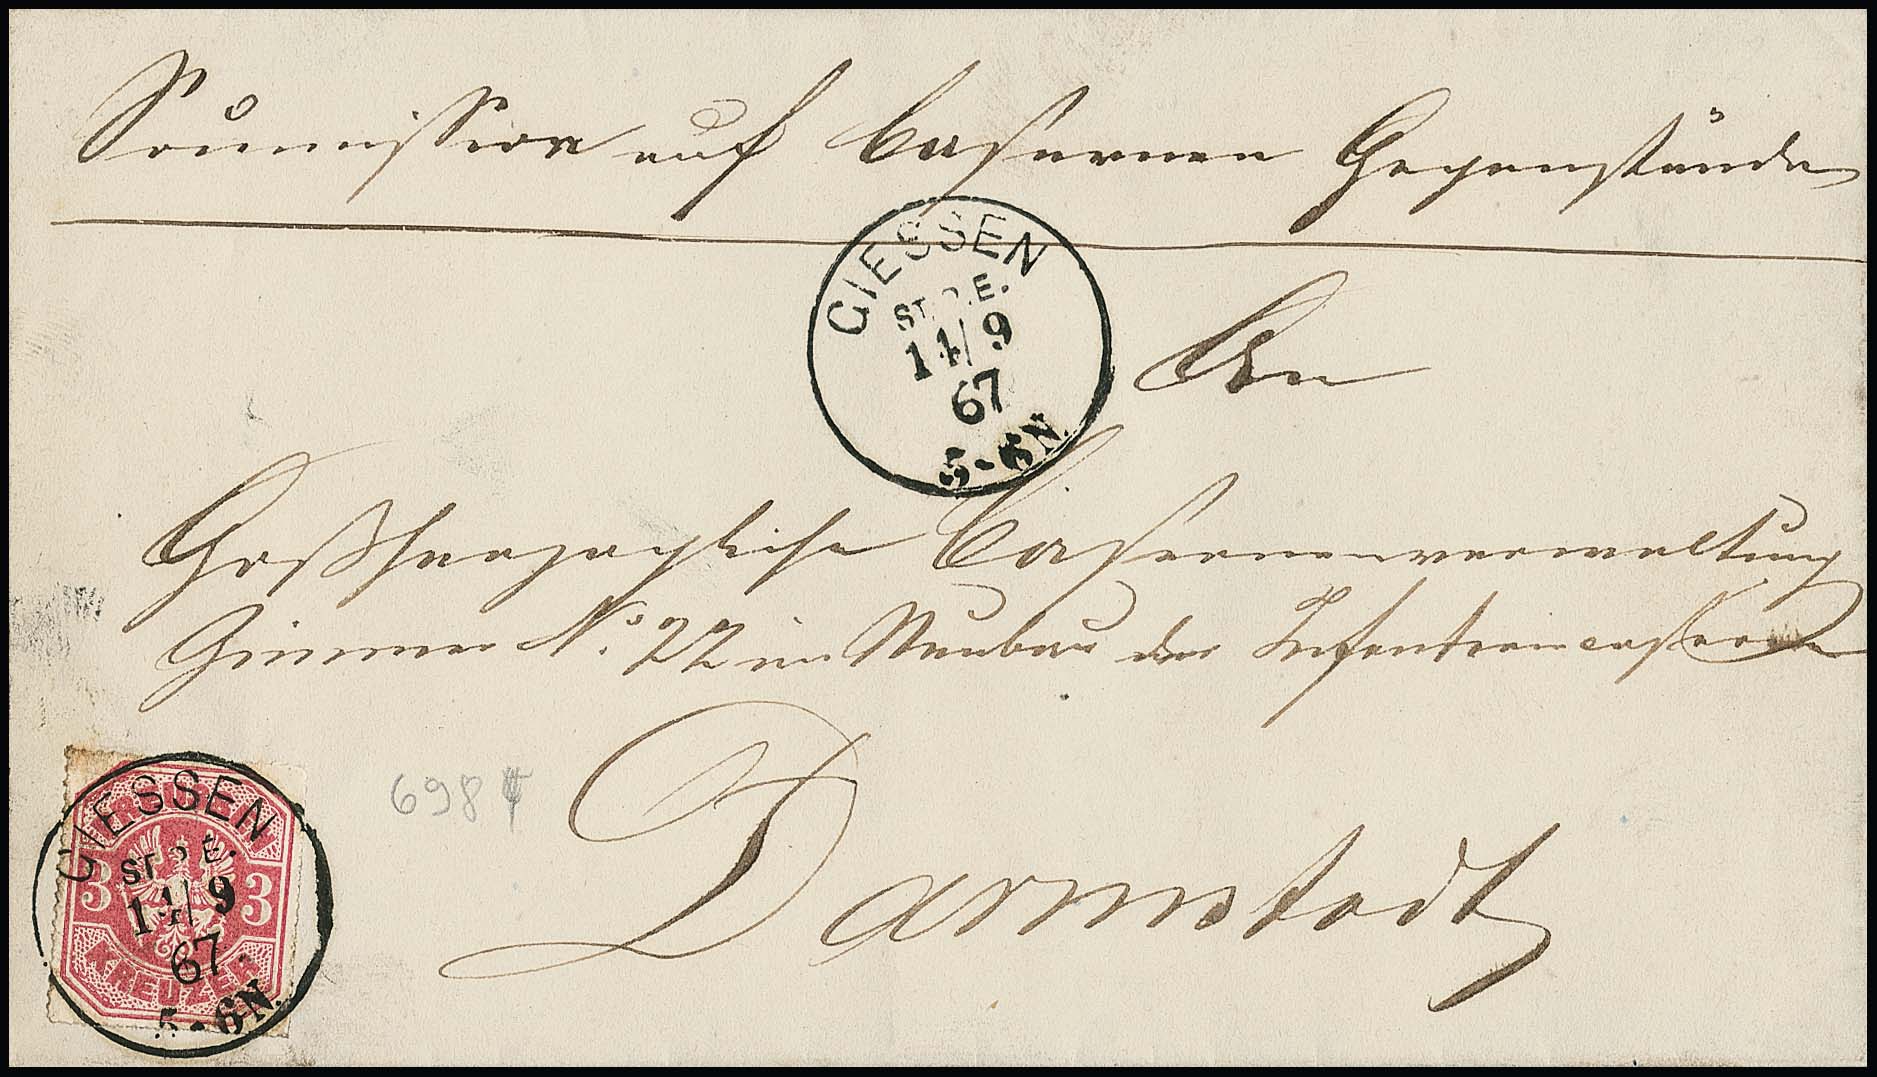 Soumission auf Casernen Gegenstände
GIESSEN
ST. P. E.
14/9
67
5-6N.
An
Großherzogliche Casernenverwaltung
Zimmer No. 22 im Neubau der Infanteriecaserne
6984
Darmstadt
GIESSEN
ST. P. E.
14/9
67
5-6N.
3 3
KREUZER